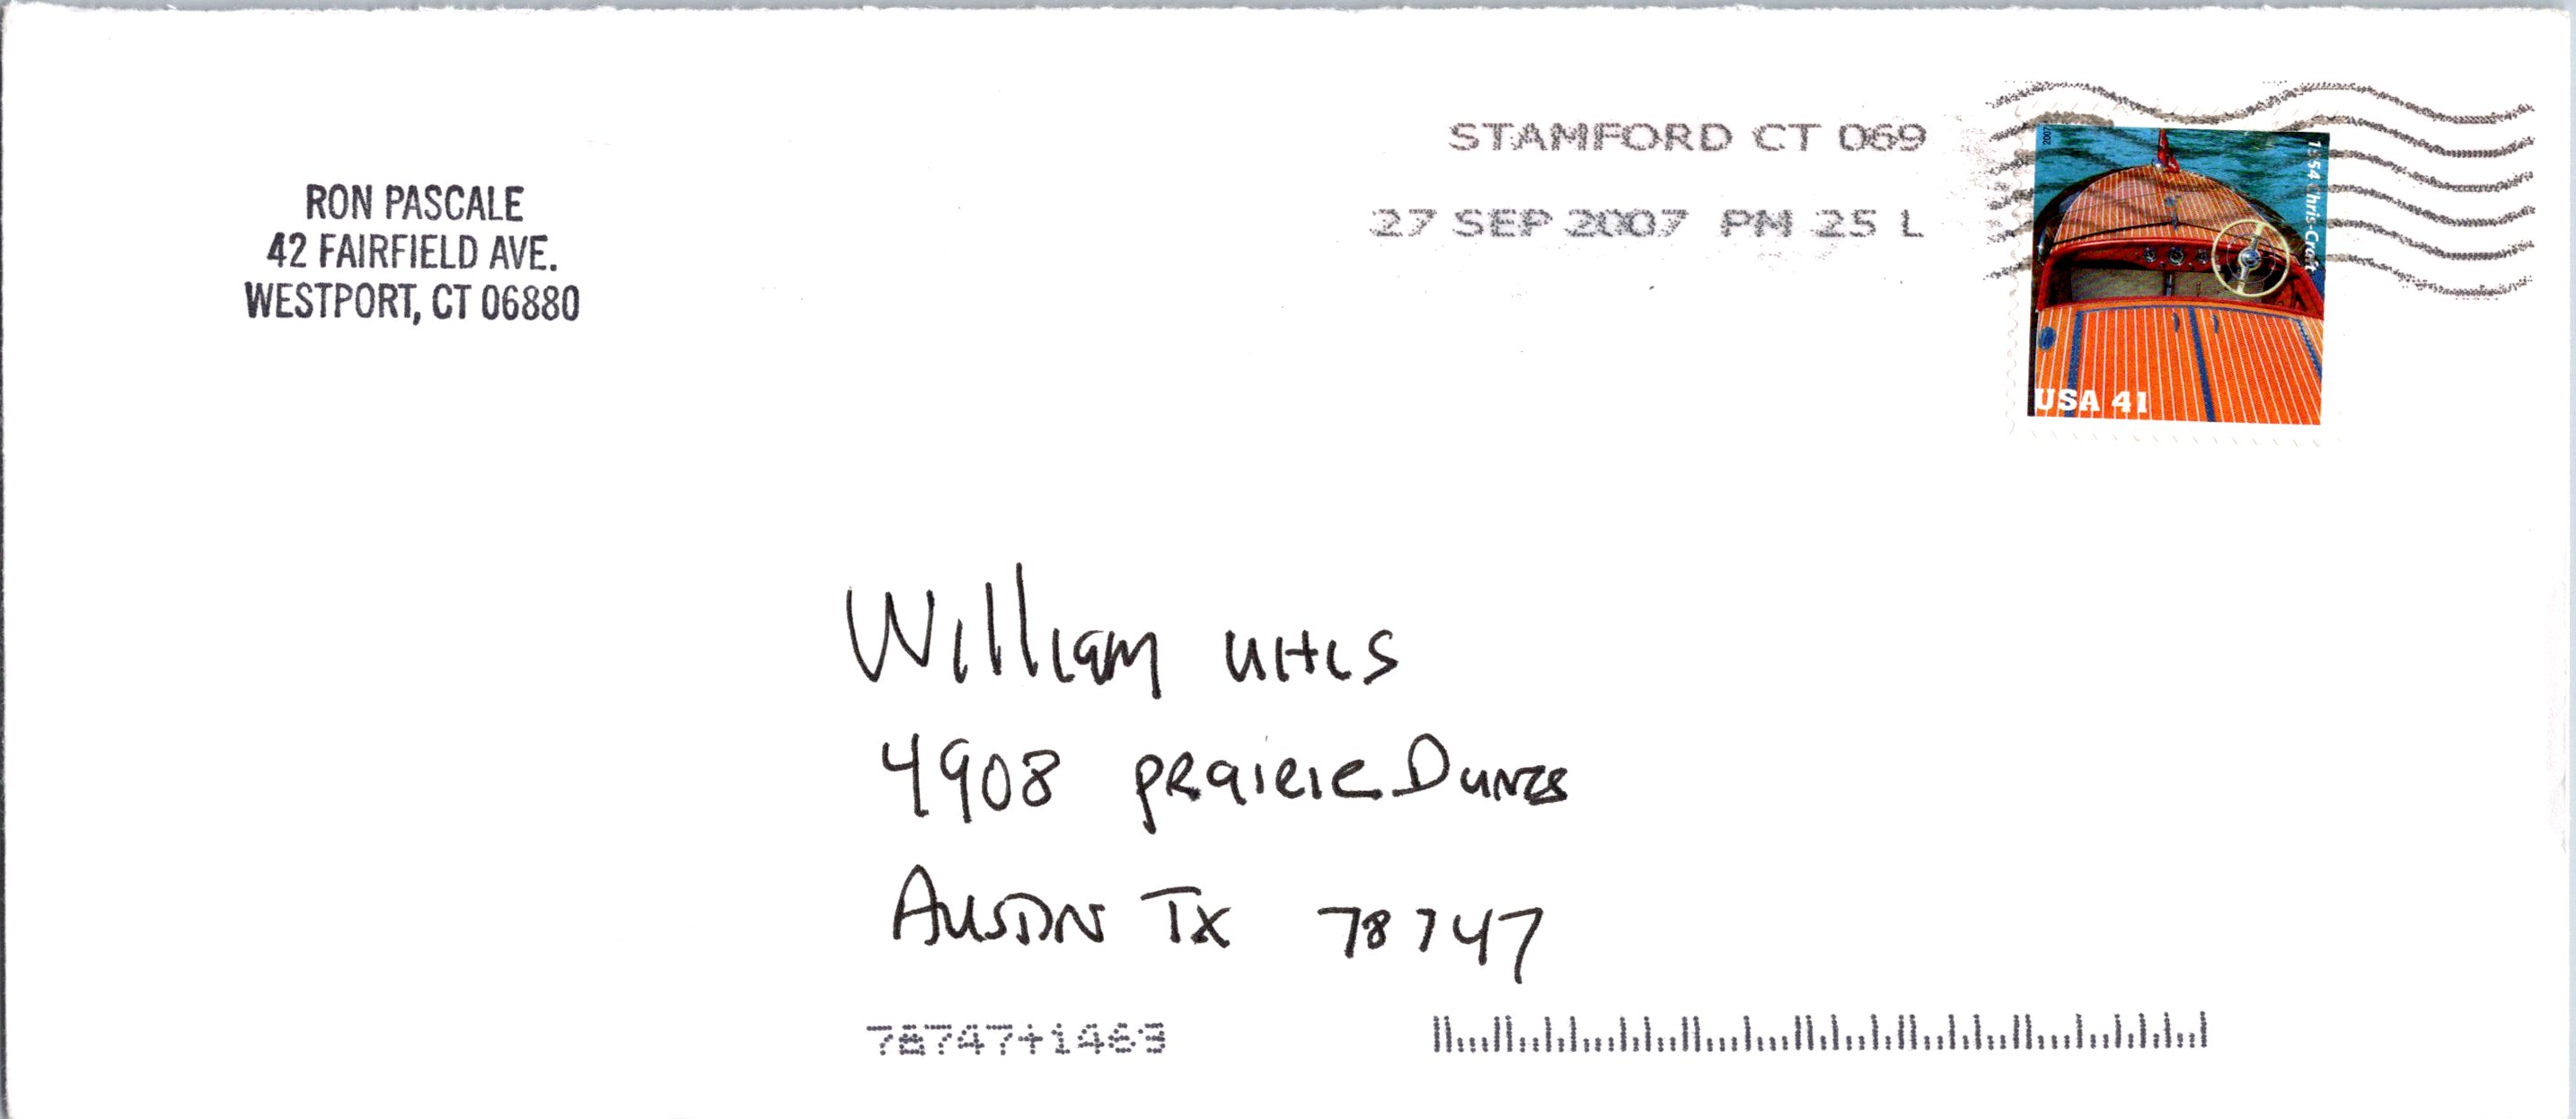 RON PASCALE
42 FAIRFIELD AVE.
WESTPORT, CT 06880
STAMFORD CT 069
27 SEP 2007 PM 25 L
2007
1954 Chris-Craft
USA 41
William
4908 Prairie Dunes
Austin TX 78747
78747+1463